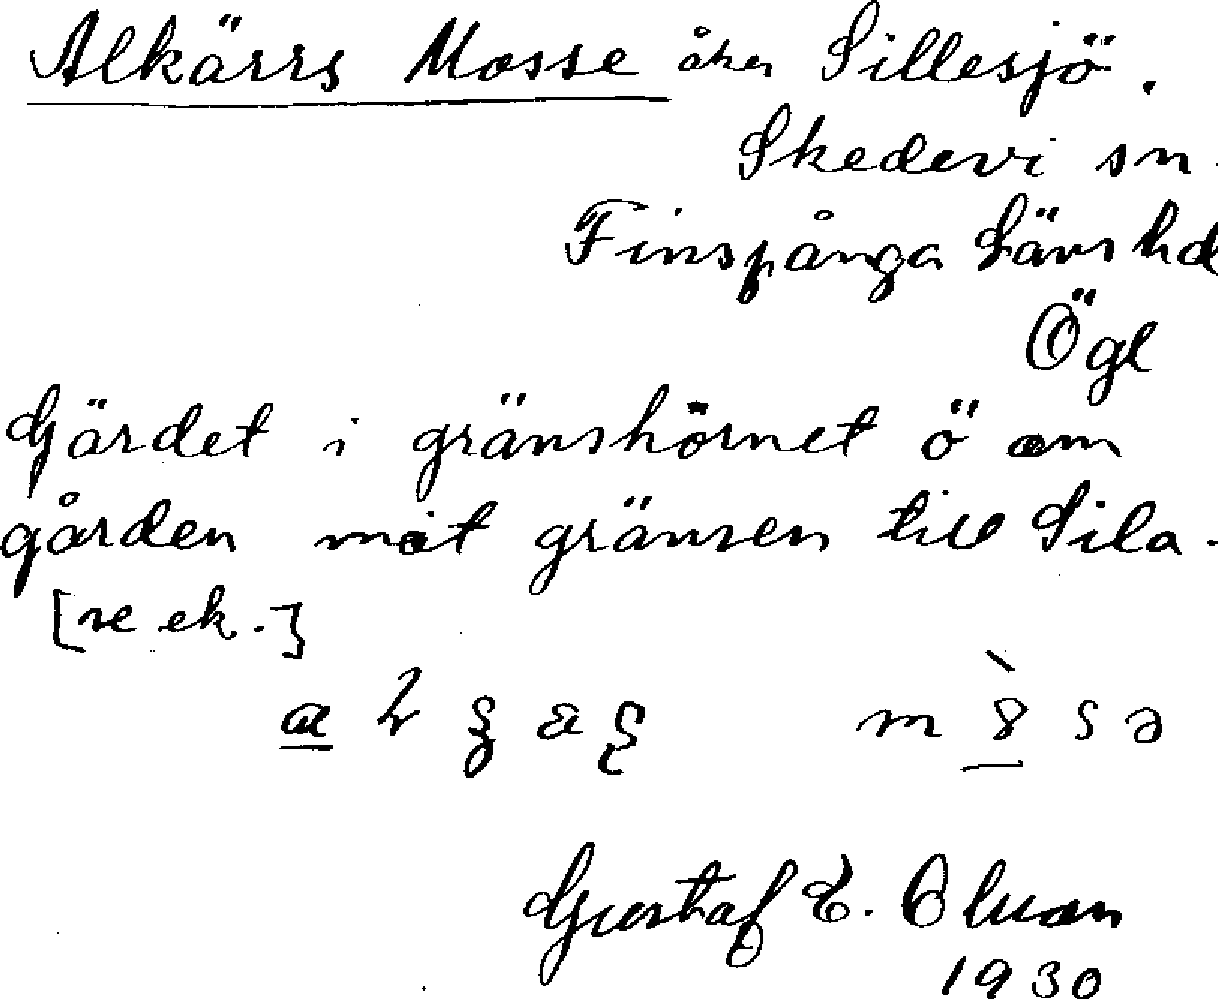 Alkärrs Mosse åker Sillesjö.
Skedevi sn.
Finspånga Läns hd
Ögl
Gärdet i gränshörnet ö om
gården mot gränsen till Sila.
[se ek.]
Gustaf E.
1930